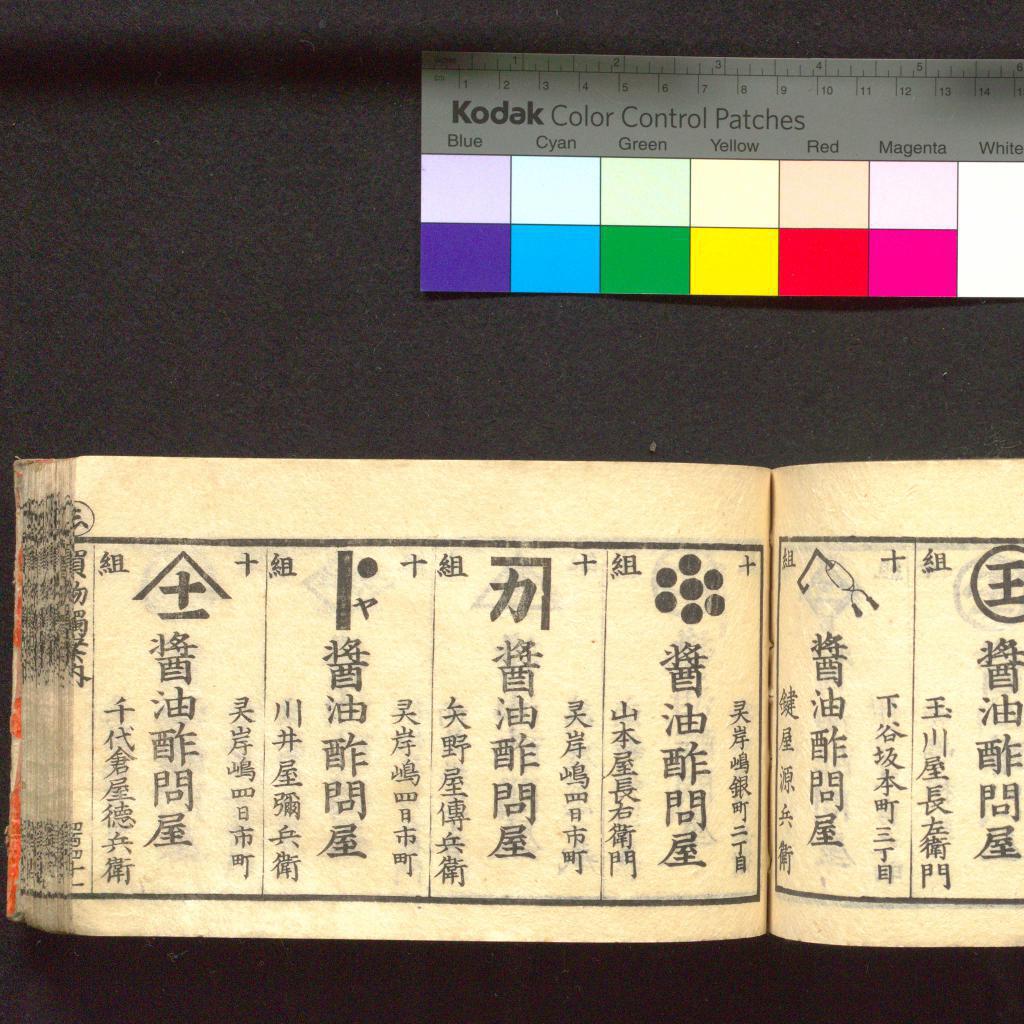 Kodak Color Control Patches
Blue Cyan Green Yellow Red Magenta White
十組
玉
醤油酢問
屋
玉川屋長左衛門
十組
下谷坂本町三丁目
醤油酢問屋
鍵屋源兵衛
十組
㚑岸嶋銀町二丁目
醤油酢問屋
山本屋長右衛門
十組
カ
㚑岸嶋四日市町
醤油酢問屋
矢野屋傳兵衛
十組
ヤ
㚑岸嶋四日市町
醤油酢問屋
川井屋彌兵衛
十組
十一
㚑岸嶋四日市町
醤油酢問屋
千代倉屋徳兵衛